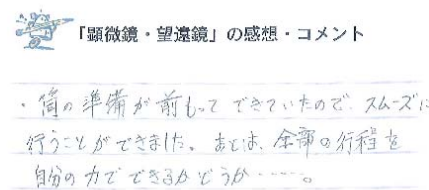 「顕微鏡・望遠鏡」の感想・コメント
・筒の準備が前もってできていたので、スムーズに
行うことができました。あとは、全部の行程を
自分の力でできるかどうか……。